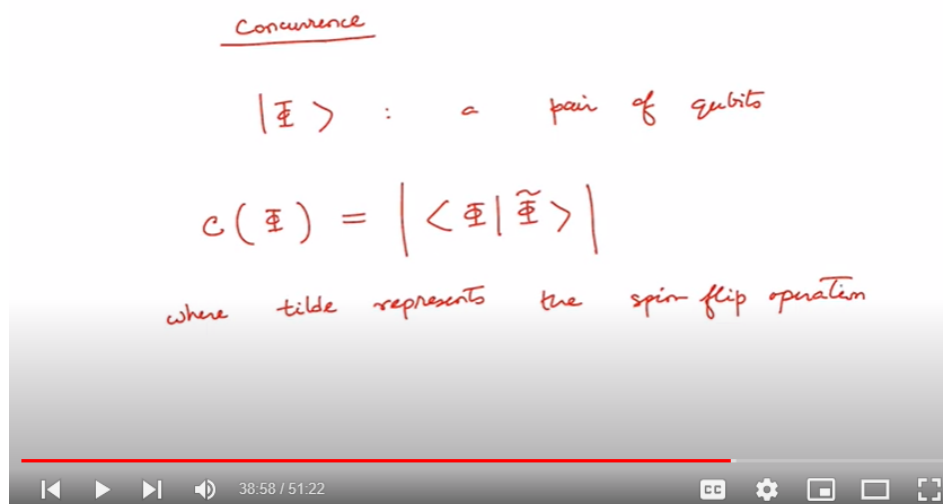 Concurrence
|Φ> : a pair of qubits
c(Φ) = |<Φ|Φ̃>|
where tilde represents the spin-flip operation
38:58 / 51:22
CC